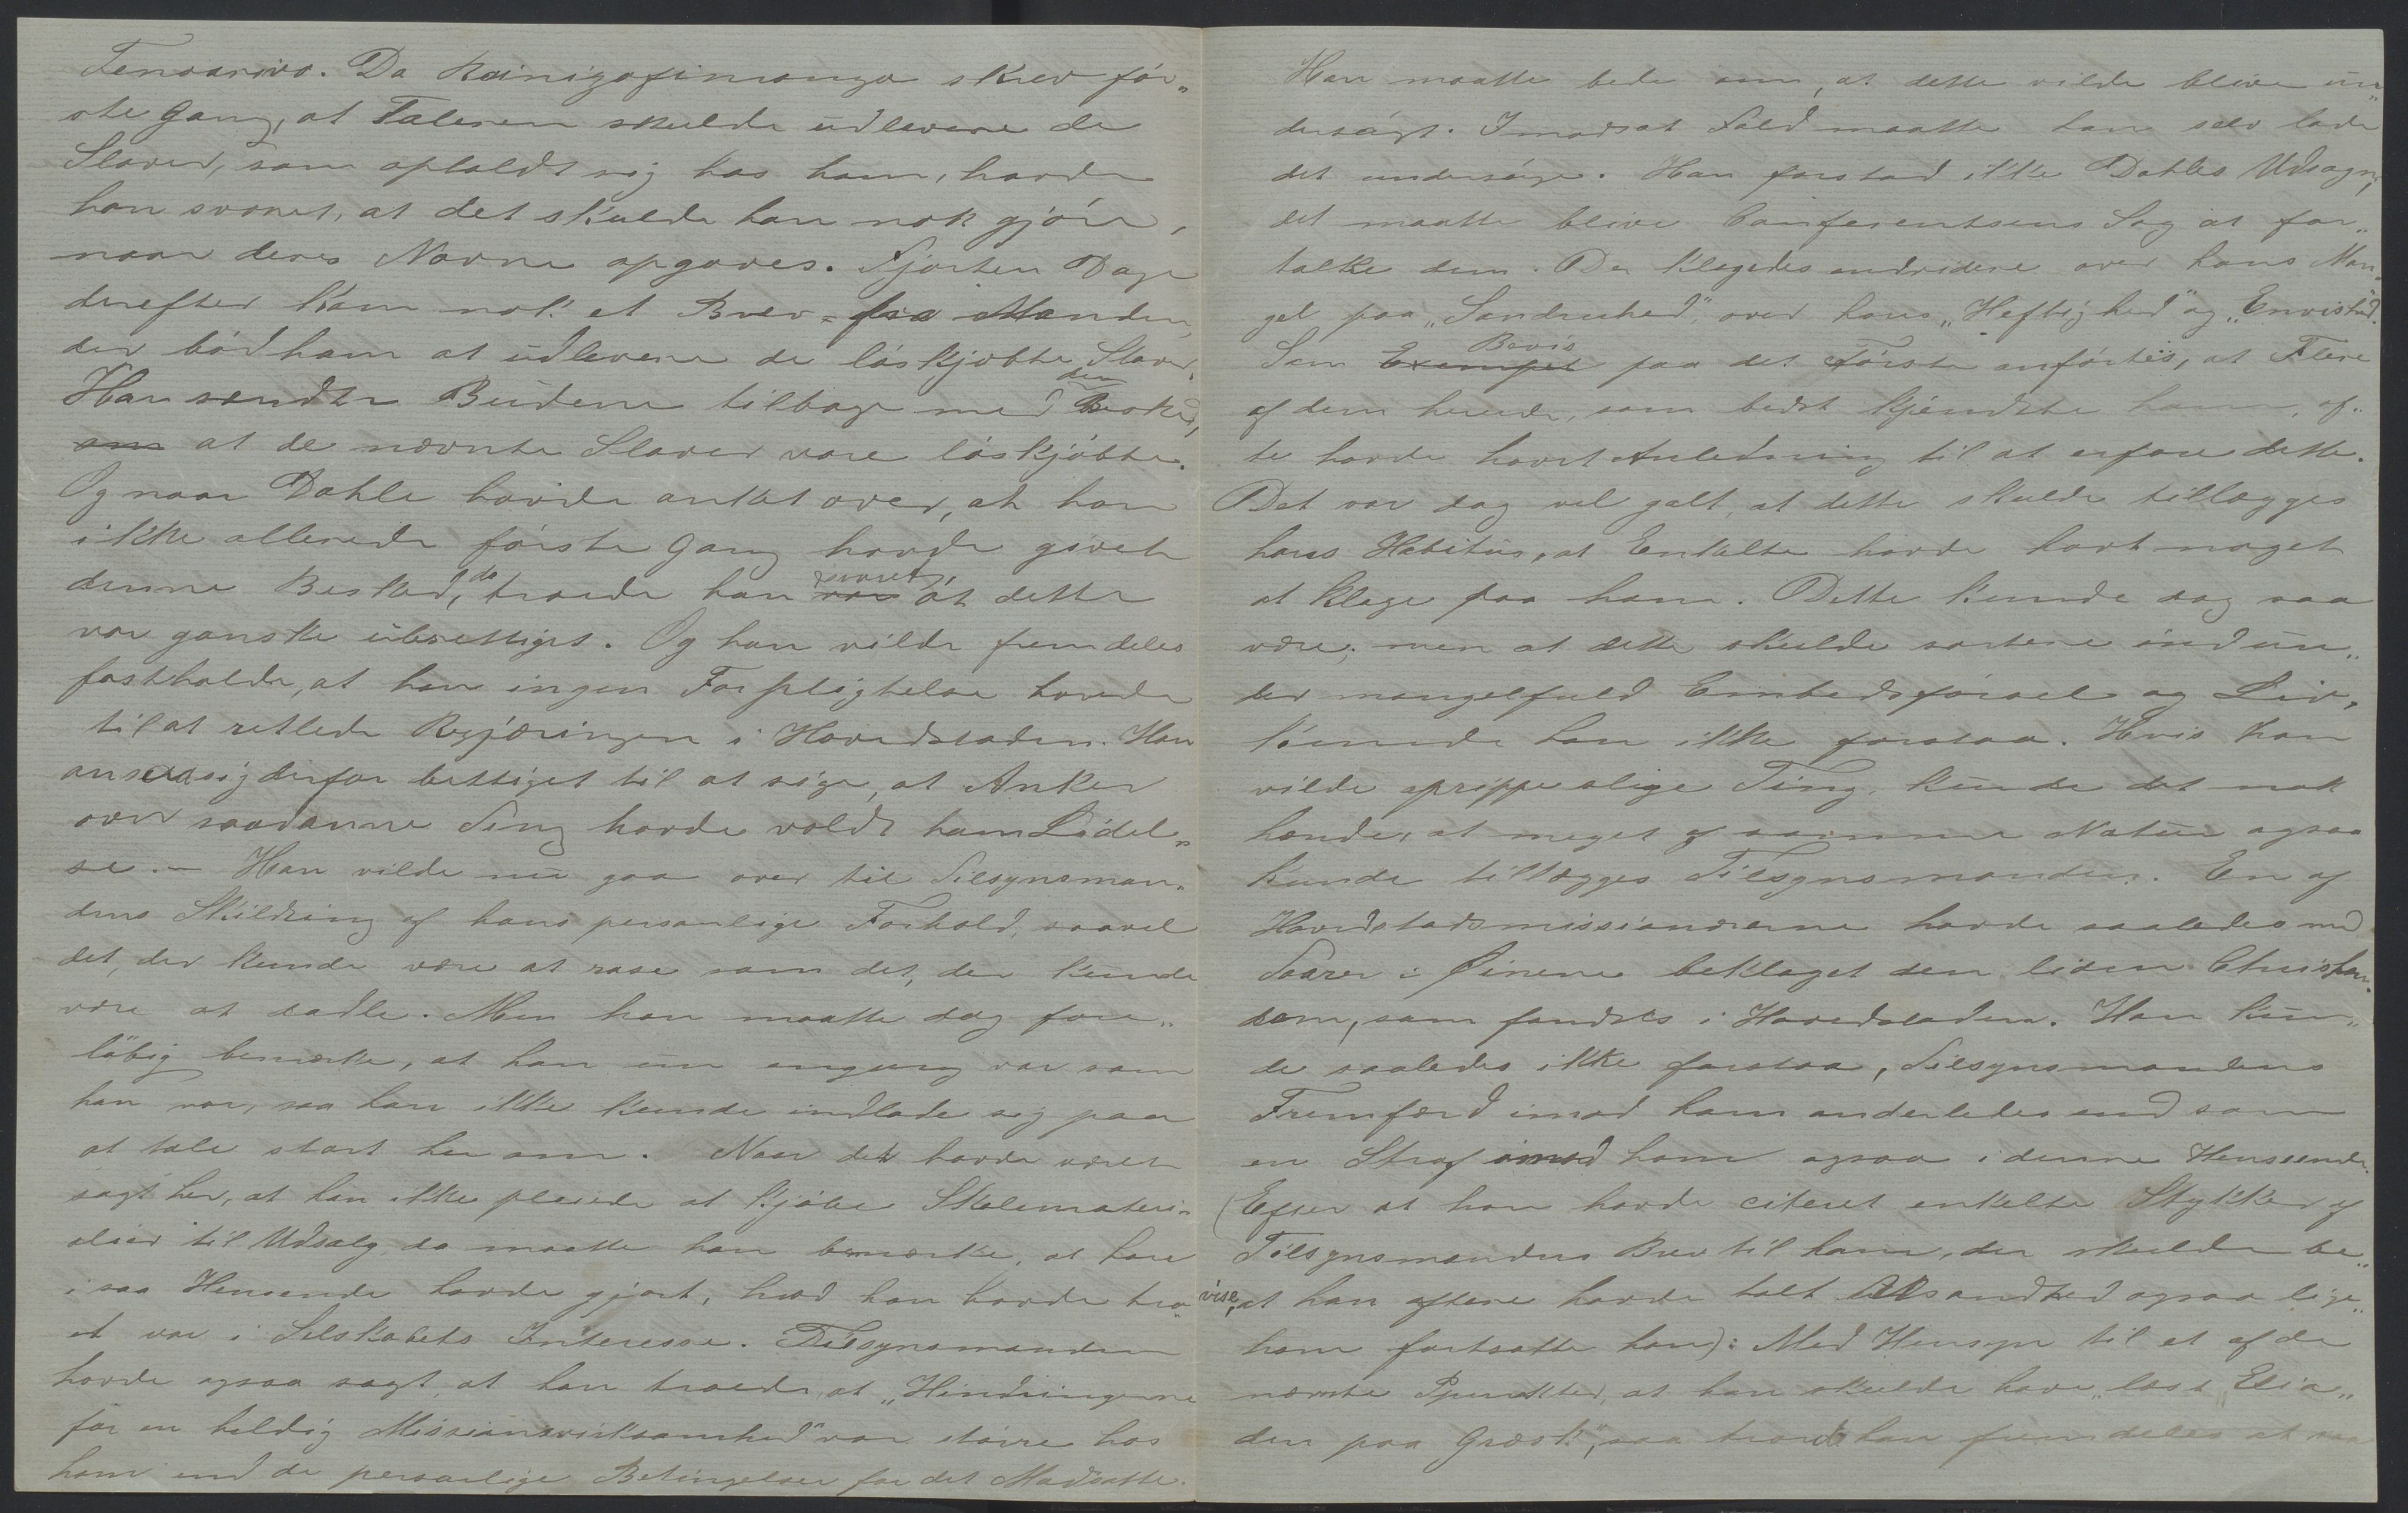 Tenoarivo. Da Rainizafimanga skrev før„
ste Gang, at Taleren skulde udlevere de
Slaver, som opholdt sig hos ham, havde
han svaret, at det skulde han nok gjøre,
naar deres Navne opgaves. Fjorten Dage
derefter kom nok et Brev fra Manden,
der bød ham at udlevere de løskjøbte Slaver.
Han sendte Budene tilbage med den Besked,
om at de nævnte Slaver vare løskjøbte.
Og naar Dahle havde anket over, at han
ikke allerede første Gang havde givet
denne Besked, da troede han var svaret, at dette
var ganske uberettiget. Og han vilde fremdeles
fastholde, at han ingen Forpligtelse havde
til at retlede Regjæringen i Hovedstaden. Han
ansaa sig derfor bettiget til at sige, at Anker
over saadanne Ting havde voldt ham Lidel„
se. — Han vilde nu gaa over til Tilsynsman„
dens Skildring af hans personlige Forhold, saavel
det, der kunde være at rose som det, der kunde
være at dadle. Men han maatte dog fore„
løbig bemærke, at han nu engang var som
han var, saa han ikke kunde indlade sig paa
at tale stort her om. Naar det havde været
sagt her, at han ikke pleiede at kjøbe Skolemateri„
alier til Udsalg, da maatte han bemærke, at han
i saa Henseende havde gjort, hvad han havde tro„
et var i Selskabets Interesse. Tilsynsmanden
havde ogsaa sagt, at han troede, at „Hindringerne
for en heldig Missionsvirksomhed" var større hos
ham end de personlige Betingelser for det Modsatte.
Han maatte bede om, at dette vilde blive un„
dersøgt. I modsat Fald maatte han selv lade
det undersøge. Han forstod ikke Dahles Udsagn,
det maatte blive Conferentsens Sag at for„
talke dem. Der klagedes endvidere over hans Man„
gel paa „Sandruhed", over hans „Heftighed" og „Envished".
Som Exempel Bevis paa det Første anførtes, at Flere
af dem herude, som bedst kjendte ham, of„
te havde havt Anledning til at erfare dette.
Det var dog vel galt, at dette skulde tillægges
hans Habitus, at Enkelte havde havt noget
at klage paa ham. Dette kunde dog saa
være; men at dette skulde sortere ind un„
der mangelfuld Embedsførsel og Liv,
kunde han ikke forstaa. Hvis han
vilde oprippe slige Ting, kunde det nok
hænde, at meget af samme Natur ogsaa
kunde tillægges Tilsynsmanden. En af
Hovedstadsmissionærerne havde saaledes med
Taarer i Øinene beklaget den liden Christen„
dom, som fandtes i Hovedstaden. Han kun„
de saaledes ikke forstaa, Tilsynsmandens
Fremfærd imod ham anderledes end som
en Straf imod ham ogsaa i denne Henseende.
(Efter at han havde citeret enkelte Stykker af
Tilsynsmandens Brev til ham, der skulde be„
vise, at han oftere havde talt Usandhed ogsaa lige„
ham fortsatte han): Med Hensyn til et af de
nævnte Punkter, at han skulde have „læst Elia„
den paa Græsk", saa troede han fremdeles at saa